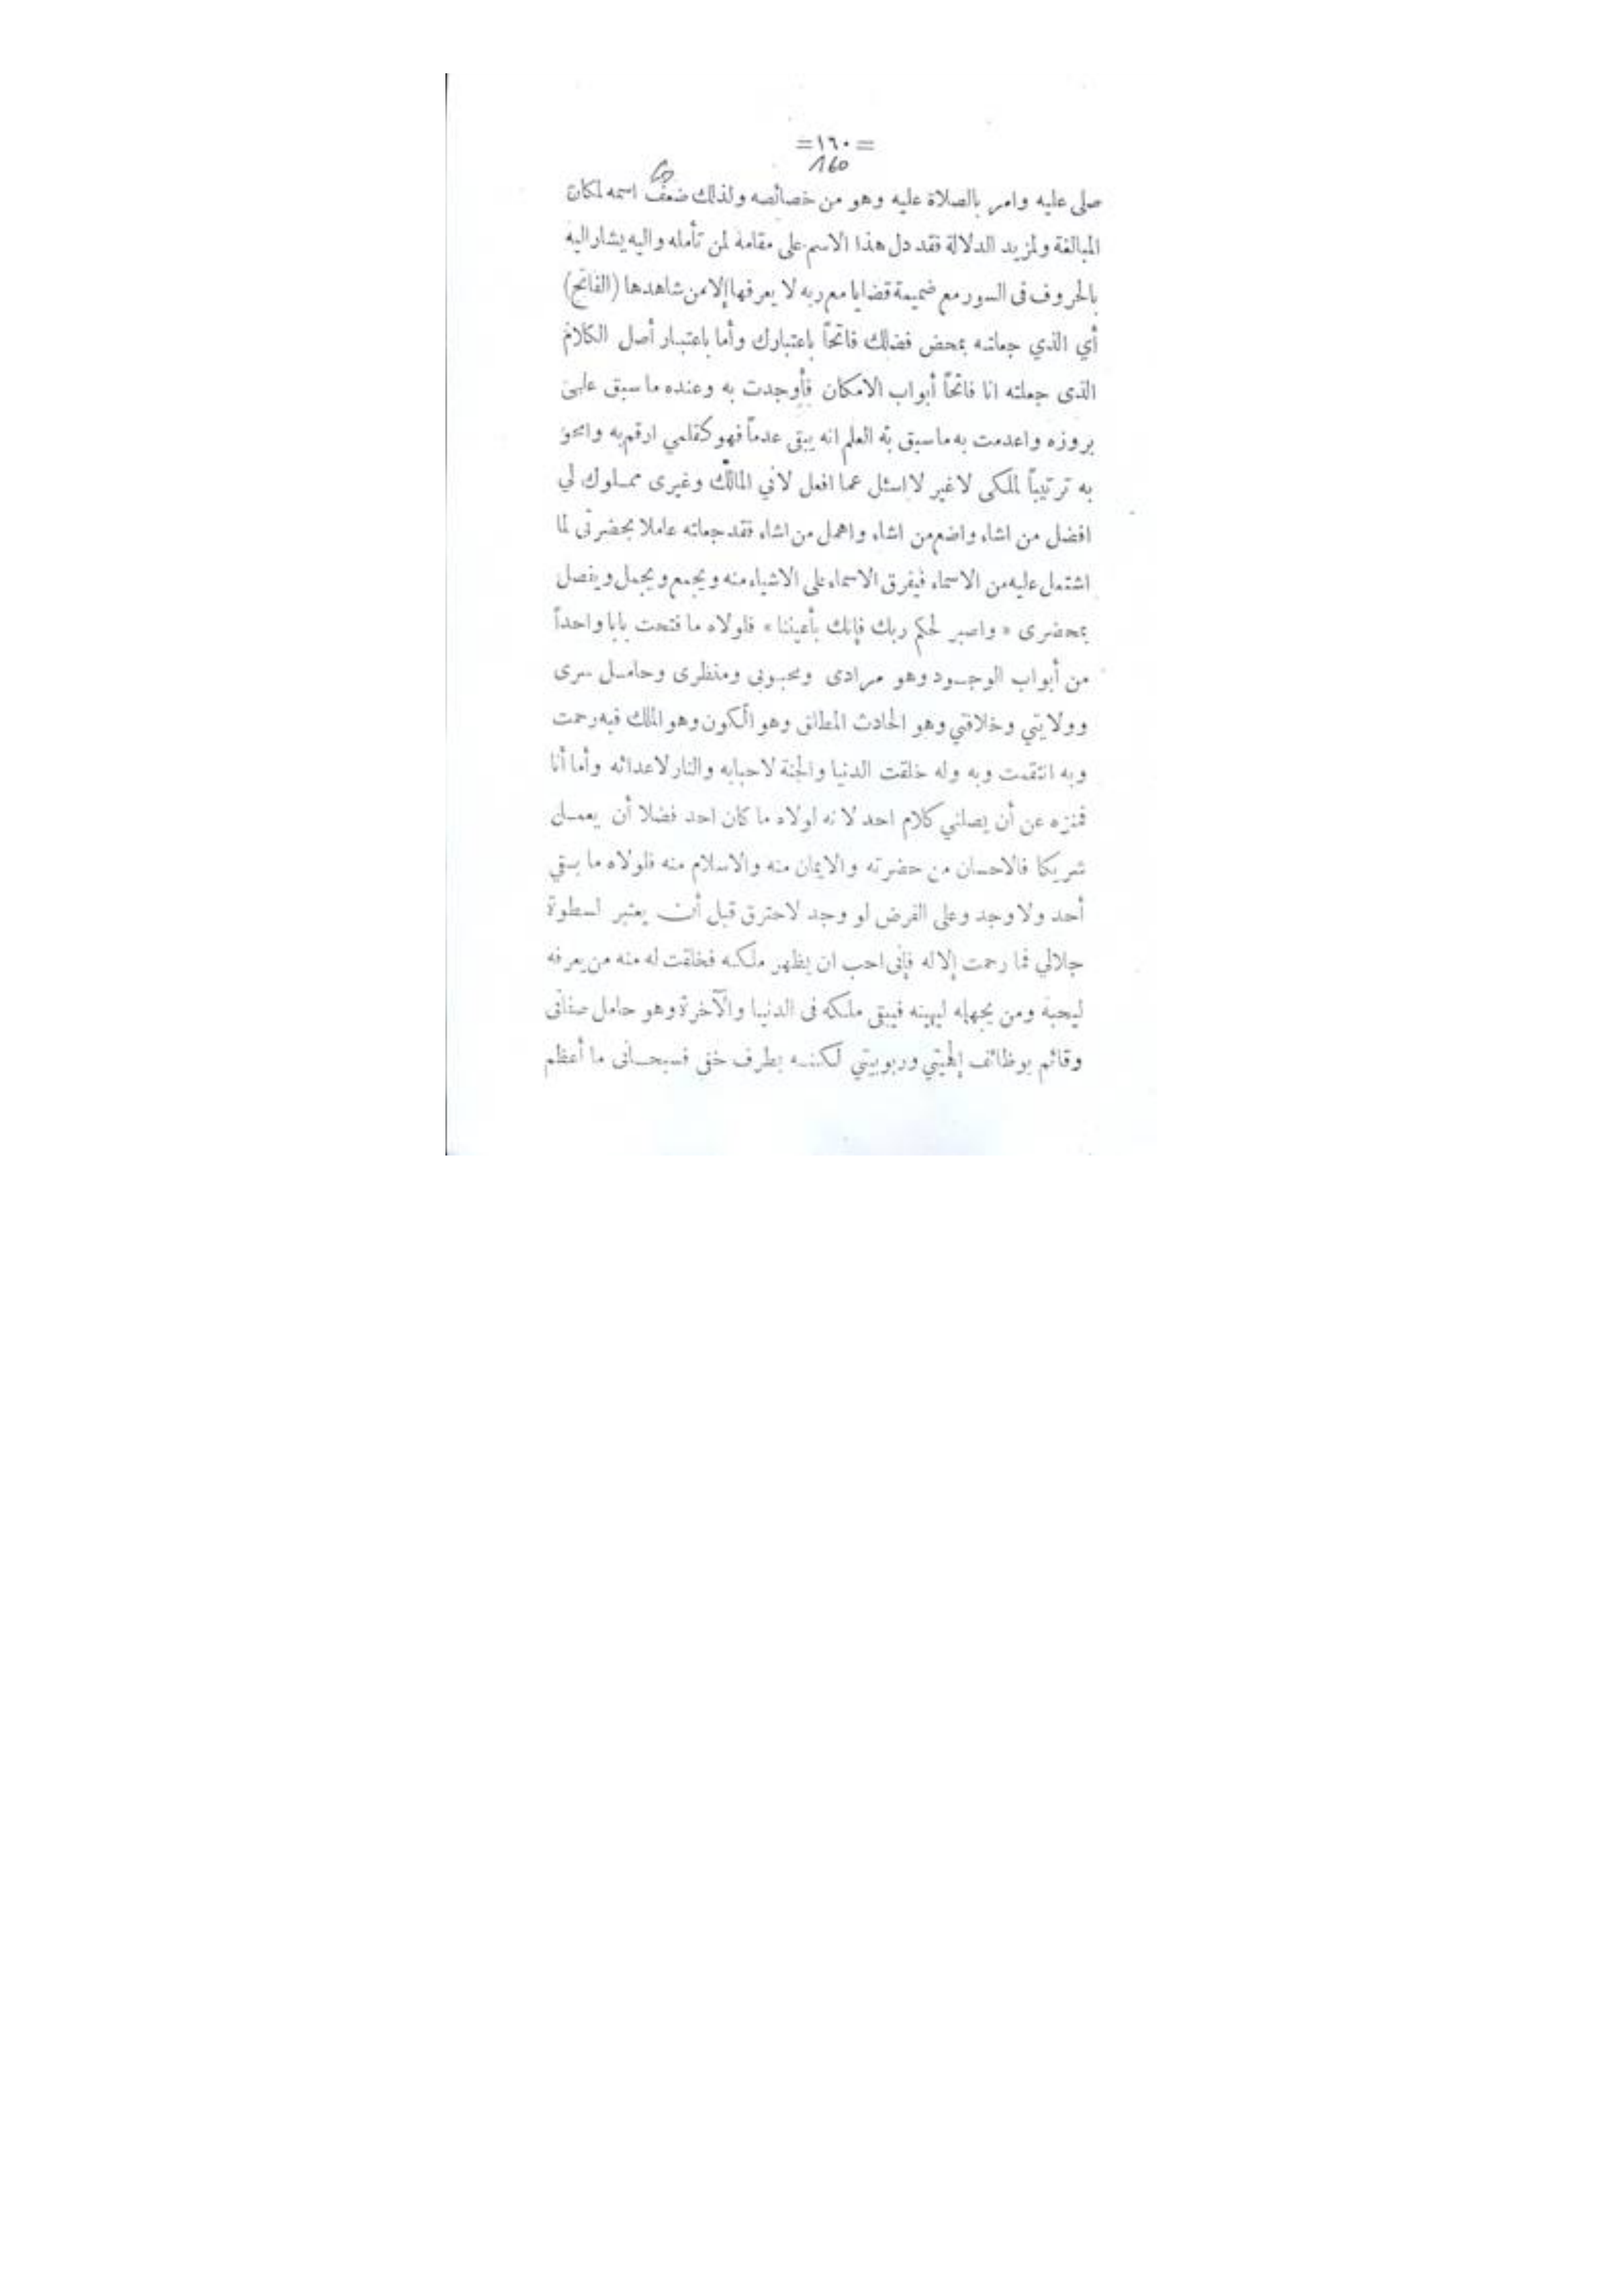 = ١٦٠ =
160
صلى عليه وامر بالصلاة عليه وهو من خصائصه ولذلك ضعف اسمه لمكان
المبالغة ولمزيد الدلالة فقد دل هذا الاسم على مقامه لمن تأمله واليه يشار اليه
بالحروف فى السور مع ضميمة قضايا مع ربه لا يعرفها إلا من شاهدها (الفاتح)
أي الذي جعلته بمحض فضلك فاتحاً باعتبارك وأما باعتبار أصل الكلام
الذى جعلته انا فاتحاً أبواب الامكان فأوجدت به وعنده ما سبق علمى
بروزه واعدمت به ما سبق به العلم انه يبقى عدماً فهو كقلمي ارقم به وامحو
به ترتيباً لملكى لا غير لا اسئل عما افعل لاني المالك وغيرى مملوك لي
افضل من اشاء واضع من اشاء واهمل من اشاء فقد جعلته عاملا بحضرتى لما
اشتمل عليه من الاسماء فيفرق الاسماء على الاشياء منه ويجمع ويجمل ويفصل
بمحضرى « واصبر لحكم ربك فإنك بأعيننا » فلولاه ما فتحت بابا واحداً
من أبواب الوجود وهو مرادى ومحبوبى ومنظرى وحامل سرى
وولايتي وخلافتي وهو الحادث المطلق وهو الكون وهو الملك فبه رحمت
وبه انتقمت وبه وله خلقت الدنيا والجنة لاحبابه والنار لاعدائه وأما أنا
فمنزه عن أن يصلني كلام احد لانه لولاه ما كان احد فضلا أن يعمل
شريكا فالاحسان من حضرته والايمان منه والاسلام منه فلولاه ما بقي
أحد ولا وجد وعلى الفرض لو وجد لاحترق قبل أن يعتبر لسطوة
جلالي فما رحمت إلا له فإنى احب ان يظهر ملكه فخلقت له منه من يعرفه
ليحبه ومن يجهله ليهينه فيبقى ملكه فى الدنيا والآخرة وهو حامل صفاتى
وقائم بوظائف إلهيتي وربوبيتي لكنه بطرف خفى فسبحانى ما أعظم